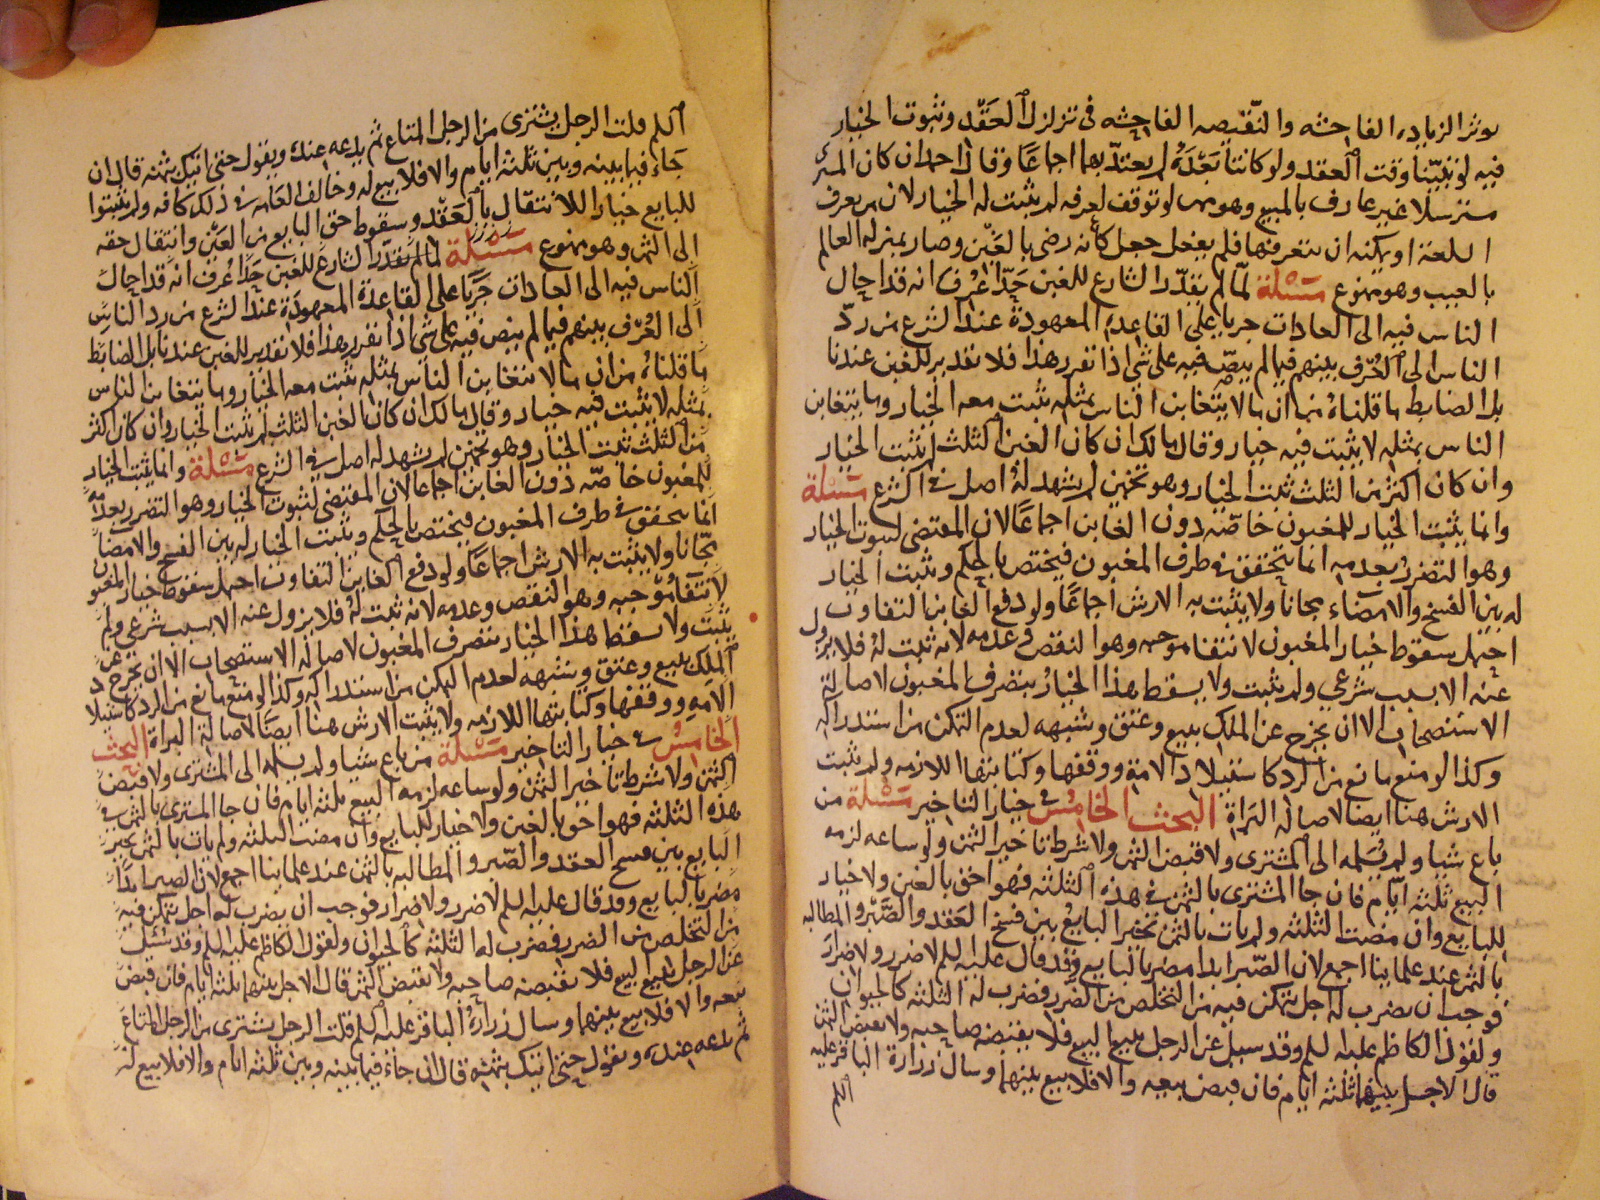 يوثر الزياده الفاحشه والنقيصه الفاحشه فى تزلزل العقد وثبوت الخيار
فيه لو تبيّنا وقت العقد ولو كانتا بعده لم يعتدّ بهما اجماعا وقال احمد ان كان المشترى
مسترسلا غير عارف بالمبيع وهو ممن لو توقف لعرفه لم يثبت له الخيار لان من يعرف
السلعة او يمكنه ان يتعرفها فلم يفعل جعل كانه رضى بالغبن وصار بمنزله العالم
بالعيب وهو ممنوع مسئلة لمّا لم يقدّر الشارع للغبن حدّا عرف انه قد احال
الناس فيه الى العادات جريا على القاعدة المعهودة عند الشرع من ردّ
الناس الى العُرف بينهم فيما لم ينصّ فيه على شى اذا تقرر هذا فلا تقدير للغبن عندنا
بل الضابط ما قلناه من ان ما لا يتغابن الناس بمثله يثبت معه الخيار وما يتغابن
الناس بمثله لا يثبت فيه خيار وقال مالك ان كان الغبن الثلث لم يثبت الخيار
وان كان اكثر من الثلث ثبت الخيار وهو تخمين لم يشهد له اصل فى الشرع مسئلة
وانما يثبت الخيار للمغبون خاصّه دون الغابن اجماعا لان المقتضى لثبوت الخيار
وهو التضرر بعدمه انما يتحقق فى طرف المغبون فيختص بالحكم ويثبت الخيار
له بين الفسخ والامضاء مجانا ولا يثبت به الارش اجماعا ولو دفع الغابن التفاوت
احتمل سقوط خيار المغبون لانتفا موجبه وهو النقص وعدمه لانه ثبت له فلا يزول
عنه الا بسبب شرعي ولم يثبت ولا يسقط هذا الخيار بتصرف المغبون لاصالة
الاستصحاب الا ان يخرج عن الملك ببيع وعتق وشبهه لعدم التمكن من استدراكه
وكذا لو منع مانع من الرد كاستيلاد الامة ووقفها وكتابتها اللازمه ولا يثبت
الارش هنا ايضا لاصالة البراة البحث الخامس فى خيار التاخير مسئلة من
باع شيا ولم يسلمه الى المشترى ولا قبض الثمن ولا شرط تاخير الثمن ولو ساعه لزمه
البيع ثلثه ايّام فان جا المشترى بالثمن فى هذه الثلثه فهو احق بالعين ولا خيار
للبايع وان مضت الثلثه ولم يات بالثمن تخير البايع بين فسخ العقد والصّبر والمطالبه
بالثمن عند علماينا اجمع لان الصّبر ابدا مضر بالبايع وقد قال عليه السلم لا ضرر ولا ضرار
فوجب ان يضرب له اجل يتمكن فيه من التخلص من الضرر فضرب له الثلثة كالحيوان
ولقول الكاظم عليه السلم وقد سيل عن الرجل يبيع البيع فلا يقبضه صاحبه ولا يقبض الثمن
قال الاجل بينهما ثلثه ايام فان قبض بيعه والا فلا بيع بينهما وسال زرارة الباقر عليه
السلم
السلم قلت الرجل يشترى من الرجل المتاع ثم يدعه عنده ويقول حتى اتيك بثمنه قال ان
جاء فيما بينه وبين ثلثة ايام والا فلا بيع له وخالف العامه فى ذلك كافه ولم يثبتوا
للبايع خيارا للانتقال بالعقد وسقوط حق البايع من العين وانتقال حقه
إلى الثمن وهو ممنوع مسئلة لما لم يقدّر الشارع للغبن حدّا عُرف انه قد احال
الناس فيه الى العادات جريا على القاعدة المعهودة عند الشرع من رد الناس
الى العُرف بينهم فيما لم ينص فيه على شى اذا تقرر هذا فلا تقدير للغبن عندنا بل الضابط
ما قلناه من ان ما لا يتغابن الناس بمثله يثبت معه الخيار وما يتغابن الناس
بمثله لا يثبت فيه خيار وقال مالك ان كان الغبن الثلث لم يثبت الخيار وان كان اكثر
من الثلث ثبت الخيار وهو تخمين لم يشهد له اصل فى الشرع مسئلة وانما يثبت الخيار
للمغبون خاصّه دون الغابن اجماعا لان المقتضى لثبوت الخيار وهو التضرر بعدمه
انما يتحقق فى طرف المغبون فيختص بالحكم ويثبت الخيار له بين الفسخ والامضا
مجّانا ولا يثبت به الارش اجماعا ولو دفع الغابن التفاوت احتمل سقوط خيار المغبون
لانتفا موجبه وهو النقص وعدمه لانه ثبت له فلا يزول عنه الا بسبب شرعي ولم
يثبت ولا يسقط هذا الخيار بتصرف المغبون لاصالة الاستصحاب الا ان يخرج عن
الملك ببيع وعتق وشبهه لعدم التمكن من استدراكه وكذا لو منع مانع من الرد كاستيلاد
الامه ووقفها وكتابتها اللازمه ولا يثبت الارش هنا ايضا لاصالة البراة البحث
الخامس فى خيار التاخير مسئلة من باع شيا ولم يسلمه الى المشترى ولا قبض
الثمن ولا شرط تاخير الثمن ولو ساعه لزمه البيع ثلثه ايام فان جا المشترى بالثمن فى
هذه الثلثه فهو احق بالعين ولا خيار للبايع وان مضت الثلثه ولم يات بالثمن تخير
البايع بين فسخ العقد والصّبر والمطالبه بالثمن عند علماينا اجمع لان الصبر ابدا
مضر بالبايع وقد قال عليه السلم لا ضرر ولا ضرار فوجب ان يضرب له اجل يتمكن فيه
من التخلص من الضرر فضرب له الثلثة كالحيوان ولقول الكاظم عليه السلم وقد سئل
عن الرجل يبيع البيع فلا يقبضه صاحبه ولا يقبض الثمن قال الاجل بينهما ثلثه ايام فان قبض
بيعه والا فلا بيع بينهما وسال زرارة الباقر عليه السلم قلت الرجل يشترى من الرجل المتاع
ثم يدعه عنده ويقول حتى اتيك بثمنه قال ان جاء فيما بينه وبين ثلثه ايام والا فلا بيع له